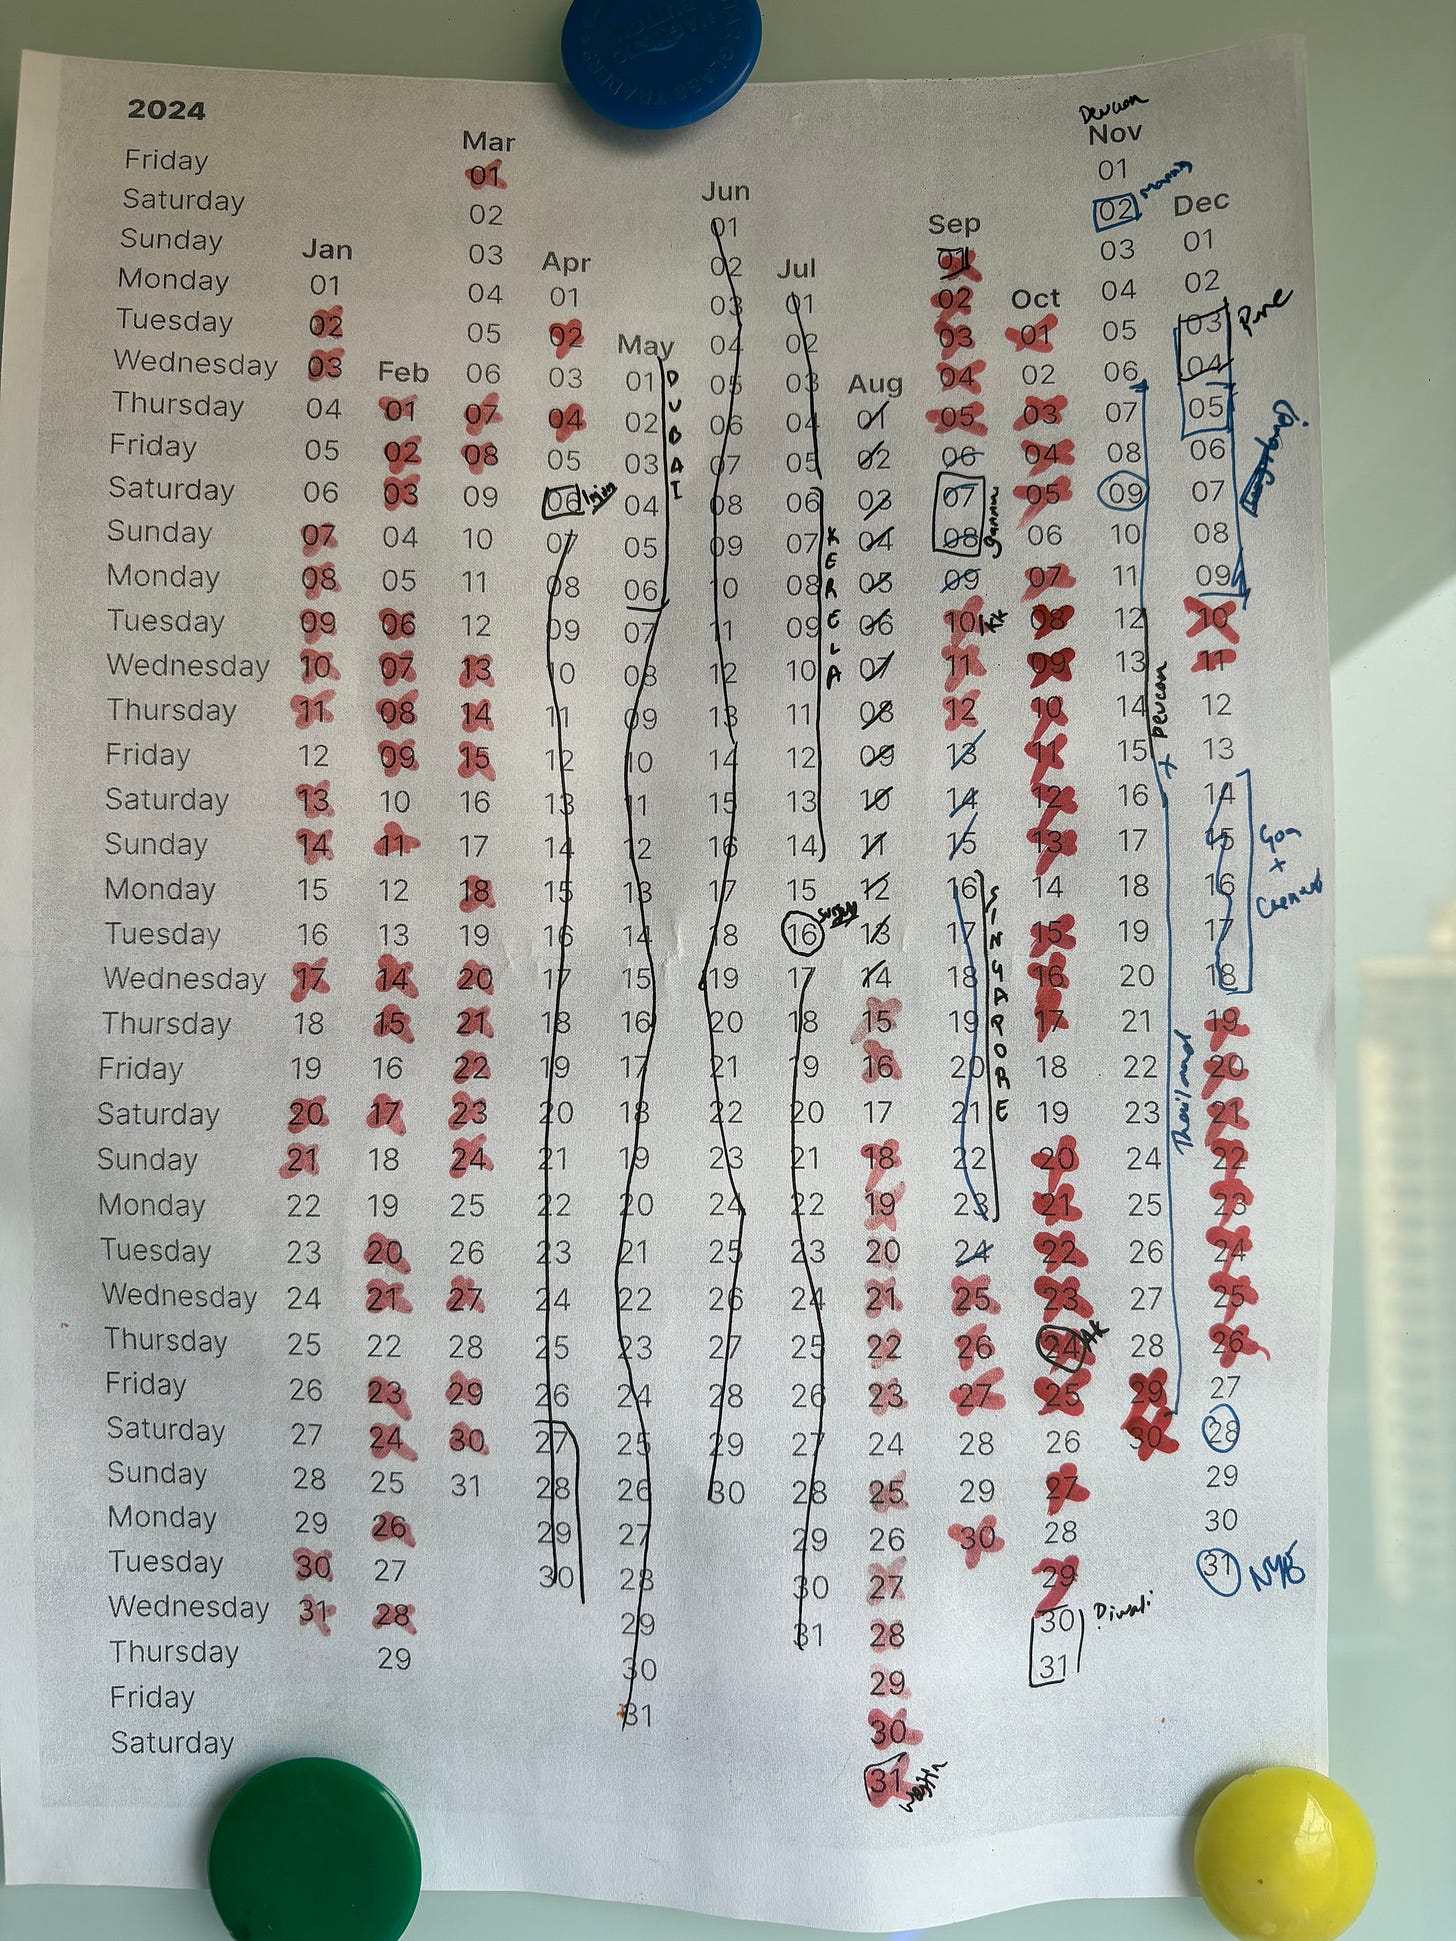 2024
Friday Mar 01 Nov 01
Saturday 02 Jun 02 Dec
Sunday Jan 03 Apr 01 Sep 03 01
Monday 01 04 01 02 Jul 01 01 Oct 04 02
Tuesday 02 05 02 May 03 02 02 01 05 03
Wednesday 03 Feb 06 03 01 04 03 Aug 03 02 06 04
Thursday 04 01 07 04 02 05 04 01 04 03 07 05
Friday 05 02 08 05 03 06 05 02 05 04 08 06
Saturday 06 03 09 06 04 07 06 03 06 05 09 07
Sunday 07 04 10 07 05 08 07 04 07 06 10 08
Monday 08 05 11 08 06 09 08 05 08 07 11 09
Tuesday 09 06 12 09 07 10 09 06 09 08 12 10
Wednesday 10 07 13 10 08 11 10 07 10 09 13 11
Thursday 11 08 14 11 09 12 11 08 11 10 14 12
Friday 12 09 15 12 10 13 12 09 12 11 15 13
Saturday 13 10 16 13 11 14 13 10 13 12 16 14
Sunday 14 11 17 14 12 15 14 11 14 13 17 15
Monday 15 12 18 15 13 16 15 12 15 14 18 16
Tuesday 16 13 19 16 14 17 16 13 16 15 19 17
Wednesday 17 14 20 17 15 18 17 14 17 16 20 18
Thursday 18 15 21 18 16 19 18 15 18 17 21 19
Friday 19 16 22 19 17 20 19 16 19 18 22 20
Saturday 20 17 23 20 18 21 20 17 20 19 23 21
Sunday 21 18 24 21 19 22 21 18 21 20 24 22
Monday 22 19 25 22 20 23 22 19 22 21 25 23
Tuesday 23 20 26 23 21 24 23 20 23 22 26 24
Wednesday 24 21 27 24 22 25 24 21 24 23 27 25
Thursday 25 22 28 25 23 26 25 22 25 24 28 26
Friday 26 23 29 26 24 27 26 23 26 25 29 27
Saturday 27 24 30 27 25 28 27 24 27 26 30 28
Sunday 28 25 31 28 26 29 28 25 28 27 29
Monday 29 26 29 27 30 29 26 29 28 30
Tuesday 30 27 30 28 30 27 30 29 31
Wednesday 31 28 29 31 28 30
Thursday 29 30 29 31
Friday 31 30
Saturday 31
Devcon
DUBAI
KERELA
SINGAPORE
Devcon
Thailand
Diwali
Goa
+
NYE